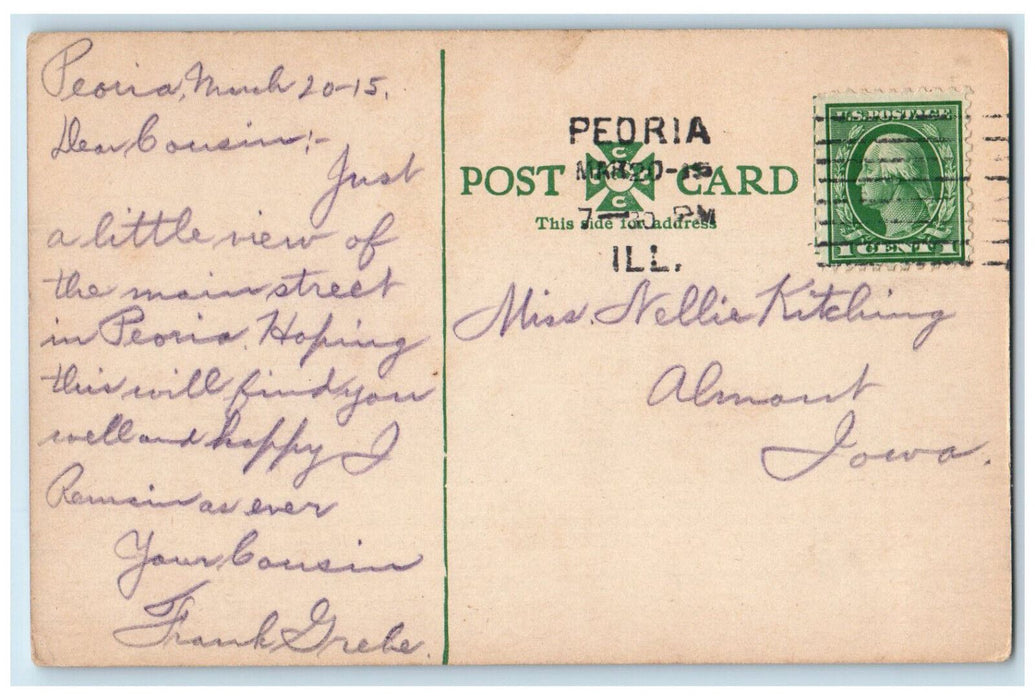 Peoria, March 20-15.
Dear Cousin:-
Just
a little view of
the main street
in Peoria. Hoping
this will find you
well and happy I
Remain as ever
Your Cousin
Frank Grebe.
PEORIA
MAR 20-15
7-30 PM
ILL.
POST CARD
C C
This side for address
U.S. POSTAGE
1 CENT 1
Miss. Nellie Kitching
Almont
Iowa.